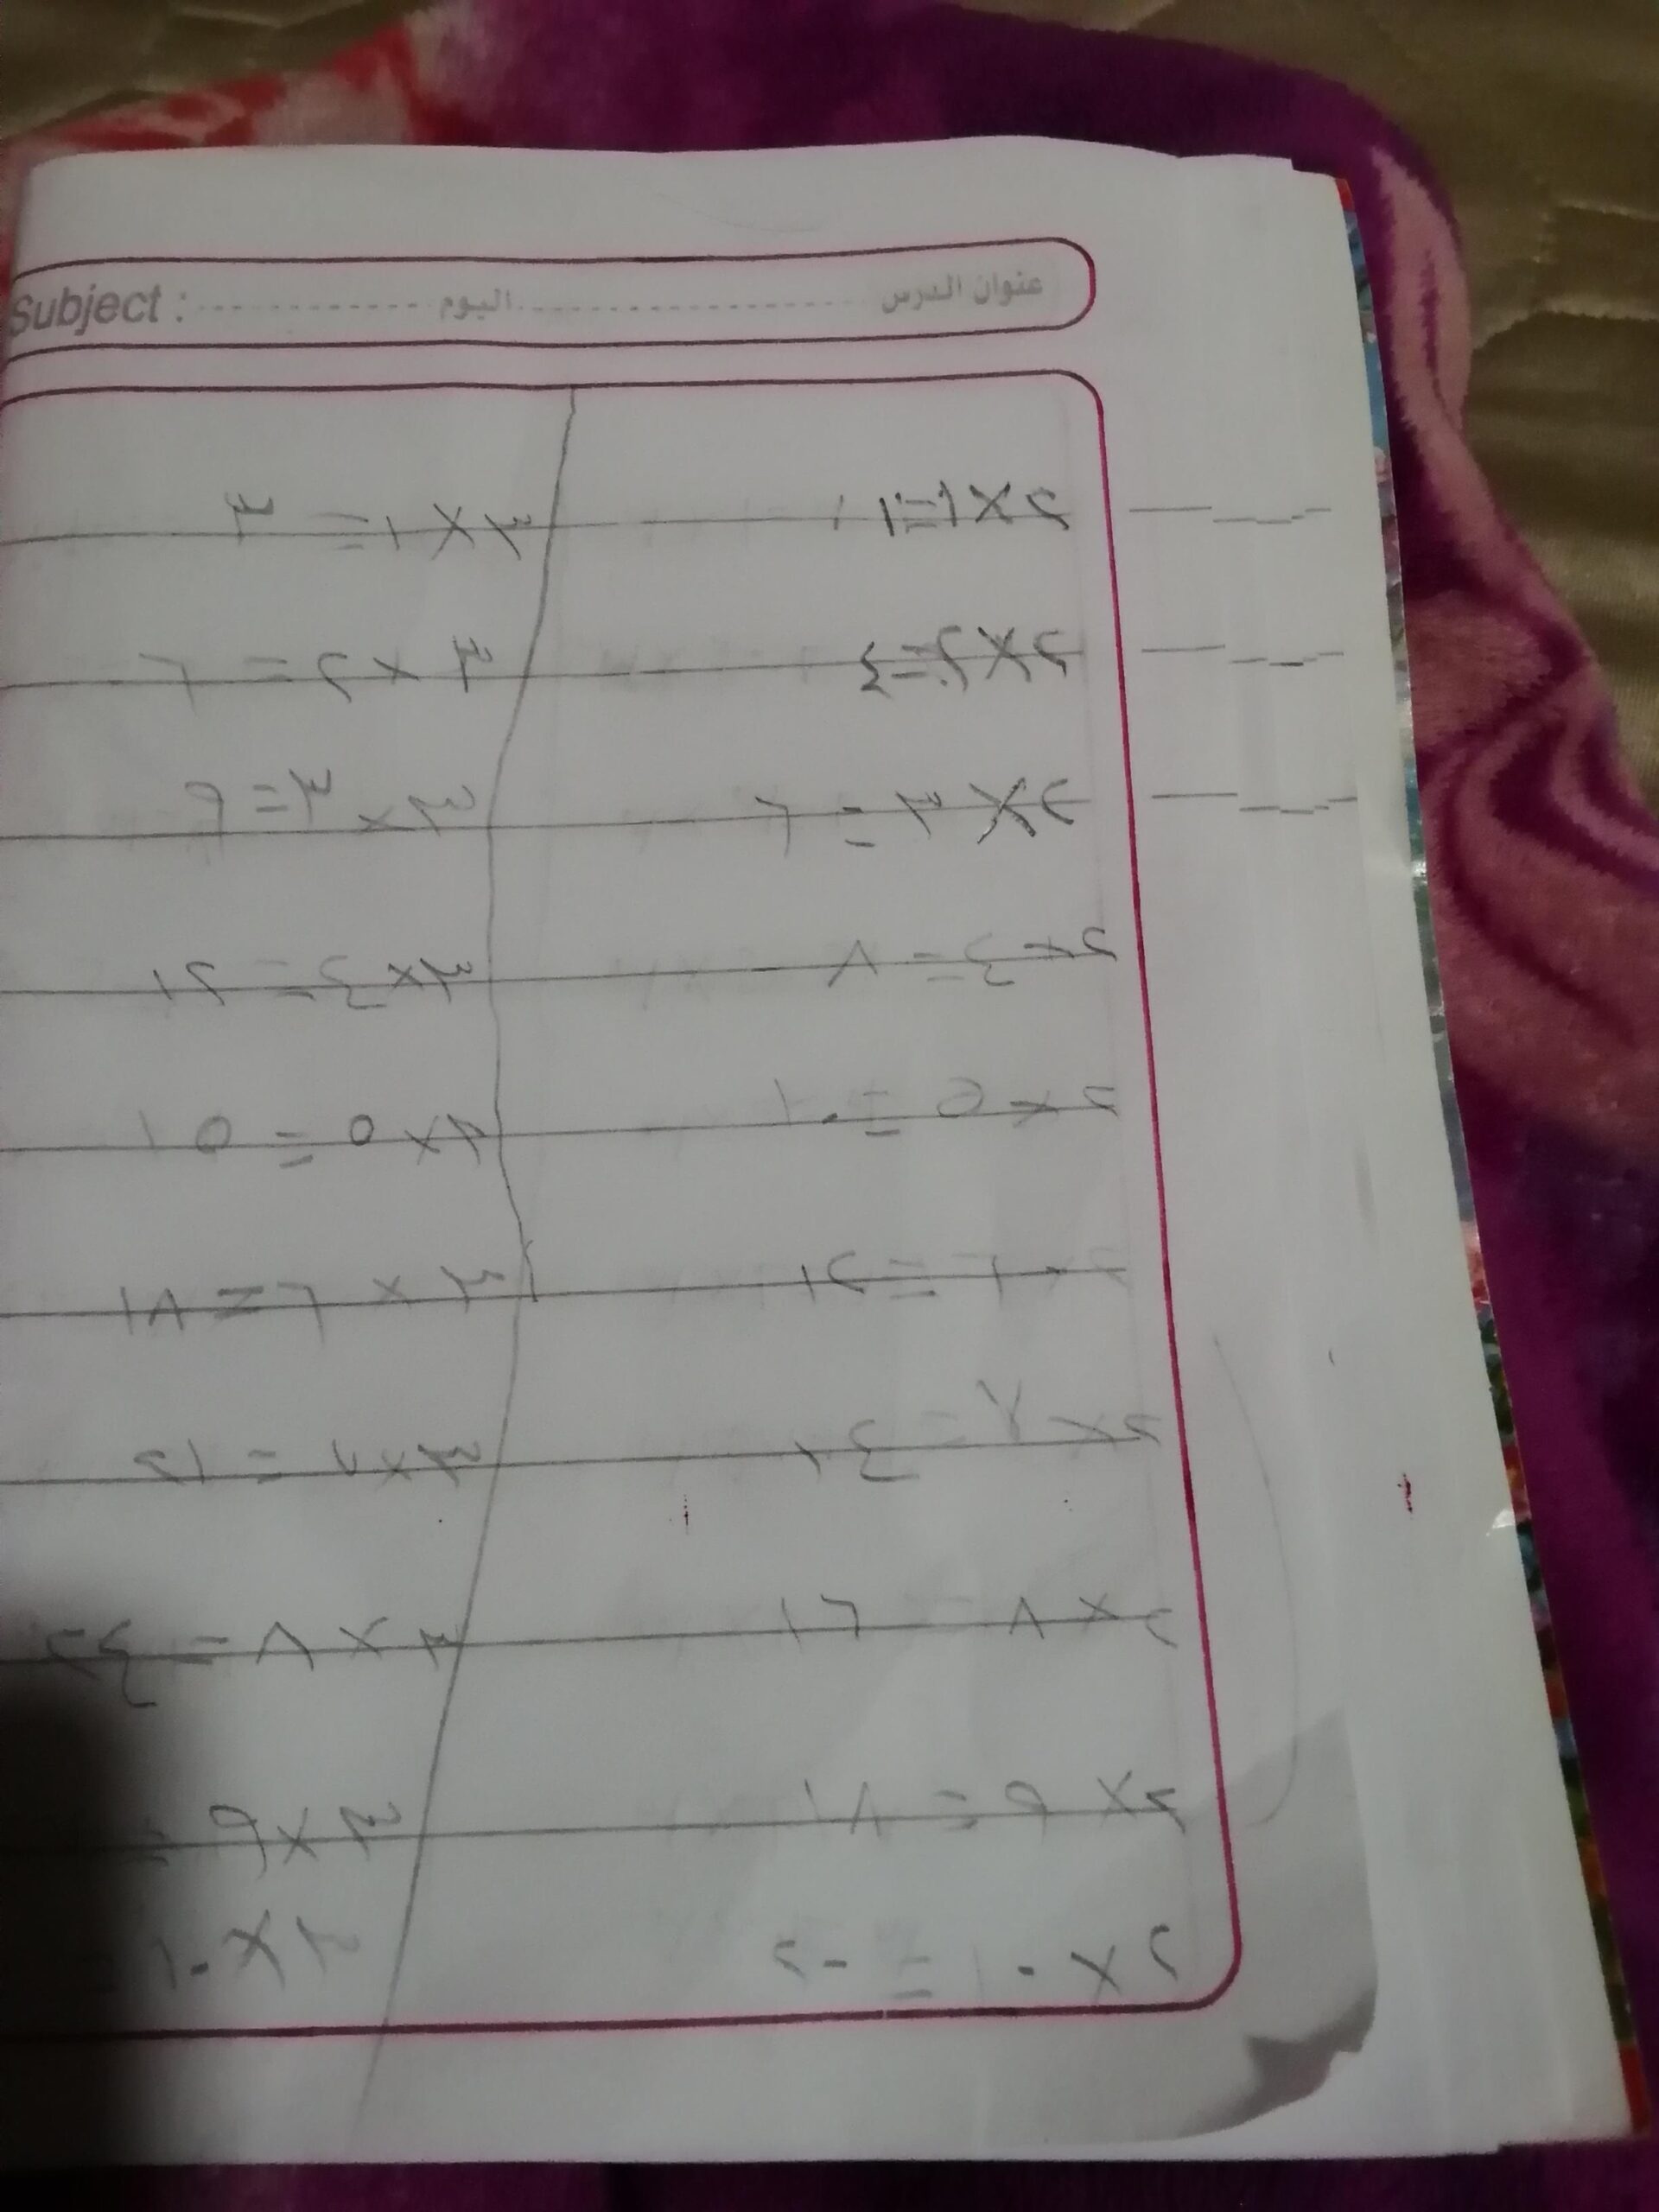 عنوان الدرس اليوم Subject :
٢×١=١
٢×٢=٤
٢×٣=٦
٢×٤=٨
٢×٥=١٠
٢×٦=١٢
٢×٧=١٤
٢×٨ ١٦
٢×٩=١٨
٢×١٠=٢٠
٣×١=٣
٣×٢=٦
٣×٣=٩
٣×٤=١٢
٣×٥=١٥
٣×٦=١٨
٣×٧=٢١
٣×٨=٢٤
٣×٩=
٣×١٠=